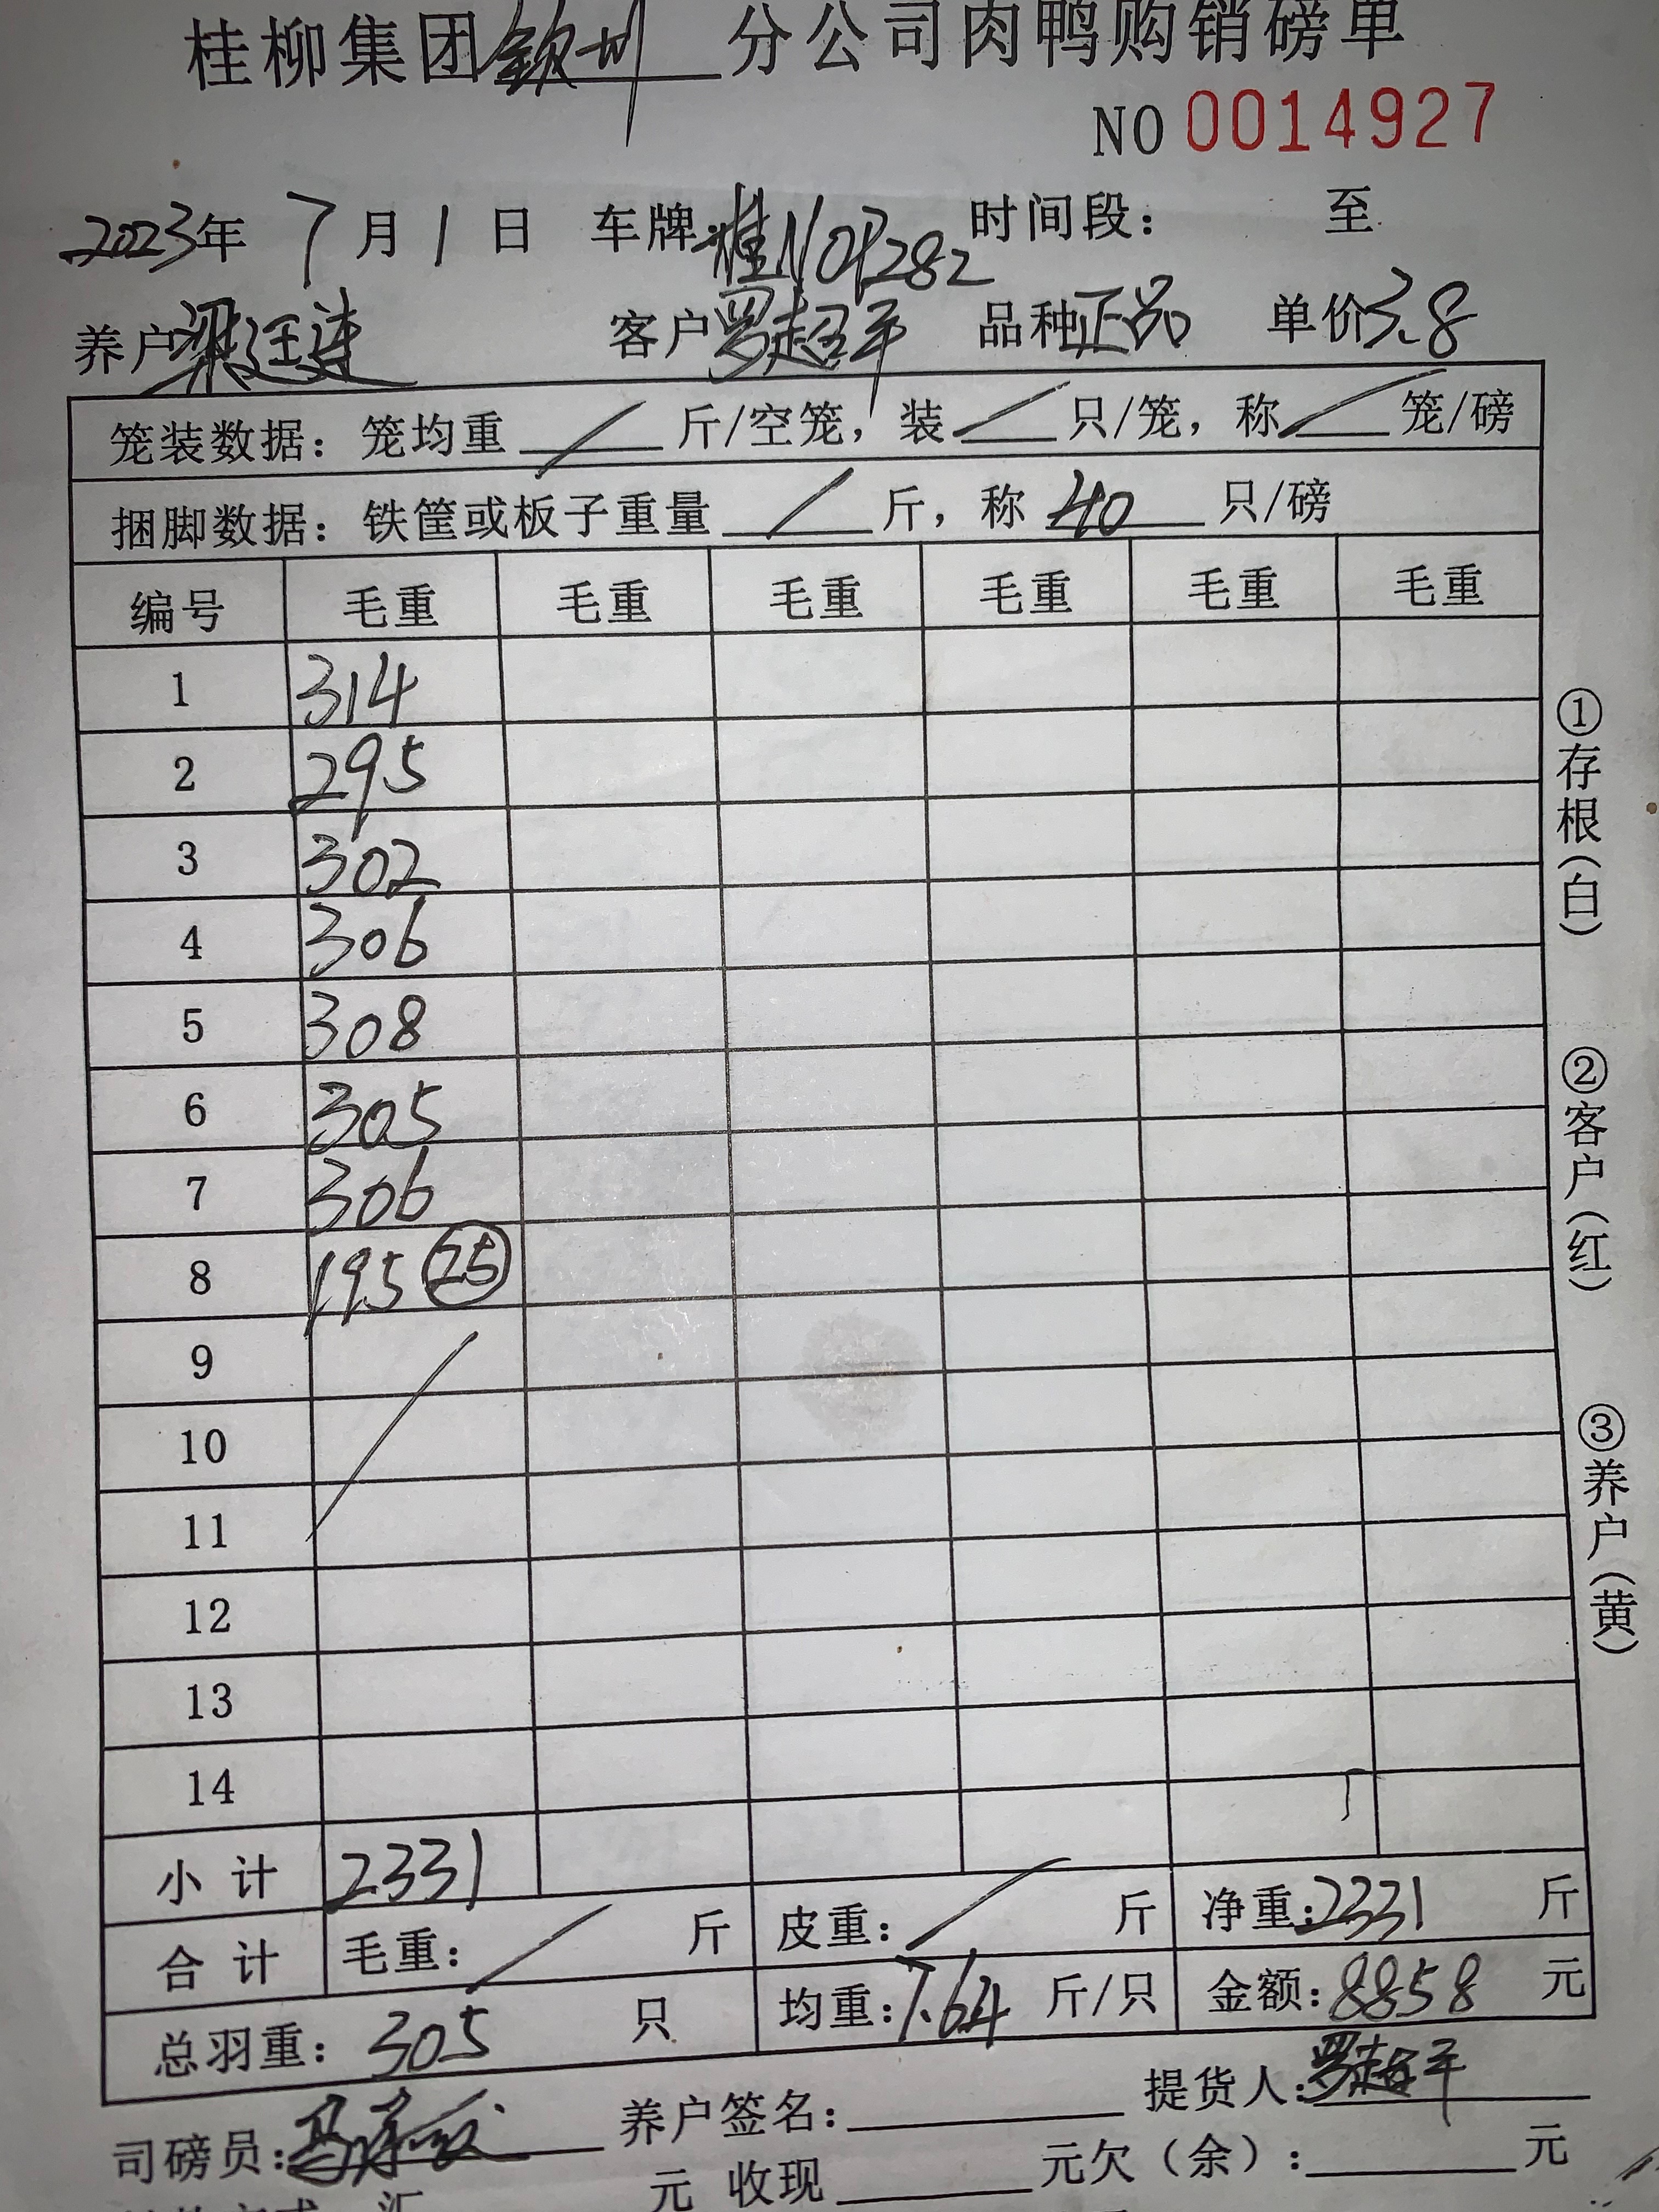 桂柳集团钦州分公司肉鸭购销磅单
NO 0014927
2023年 7月1日 车牌:桂N0P282 时间段: 至
养户 梁廷连 客户 罗超平 品种 正品 单价 3.8
笼装数据: 笼均重 / 斤/空笼, 装 / 只/笼, 称 / 笼/磅
捆脚数据: 铁筐或板子重量 / 斤, 称 40 只/磅
编号 毛重 毛重 毛重 毛重 毛重 毛重
1 314
2 295
3 302
4 306
5 308
6 305
7 306
8 195 25
9
10
11
12
13
14
小计 2331
合计 毛重: / 斤 皮重: / 斤 净重: 2331 斤
总羽重: 305 只 均重: 7.64 斤/只 金额: 8858 元
司磅员: 养户签名: 提货人: 罗超平
元 收现 元欠(余): 元
①存根(白)
②客户(红)
③养户(黄)